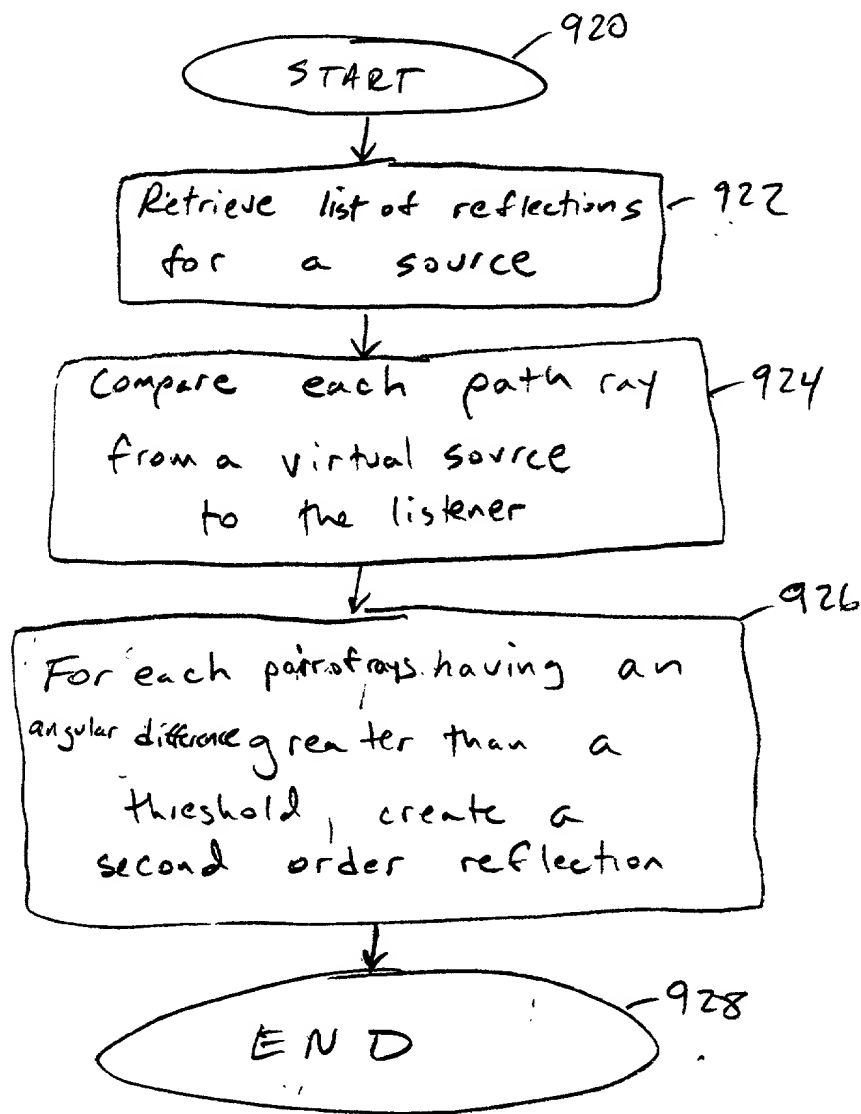 920
START
Retrieve list of reflections
for a source
922
Compare each path ray
from a virtual source
to the listener
924
926
For each pair of rays having an
angular difference greater than a
threshold, create a
second order reflection
928
END